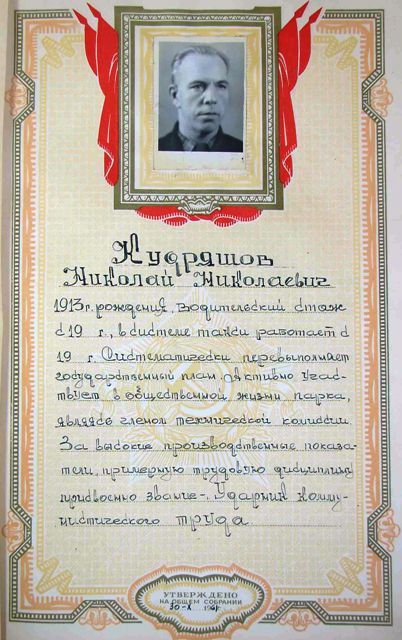 Кудряшов
Николай Николаевич
1913 г. рождения, водительский стаж
с 19 г., в системе такси работает с
19 г. Систематически перевыполняет
государственный план. Активно участ-
вует в общественной жизни парка,
являясь членом технической комиссии.
За высокие производственные показа-
тели, примерную трудовую дисциплину
присвоено звание-„Ударник комму-
нистического труда
УТВЕРЖДЕНО
НА ОБЩЕМ СОБРАНИИ
30-X 1961